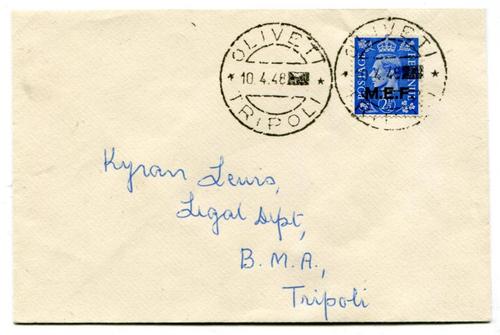 OLIVETI
* 10.4.48 *
TRIPOLI
OLIVETI
4.48 *
POSTAGE
REVENUE
M.E.F.
2½d
Kyran Lewis,
Legal Dpt,
B. M. A.,
Tripoli